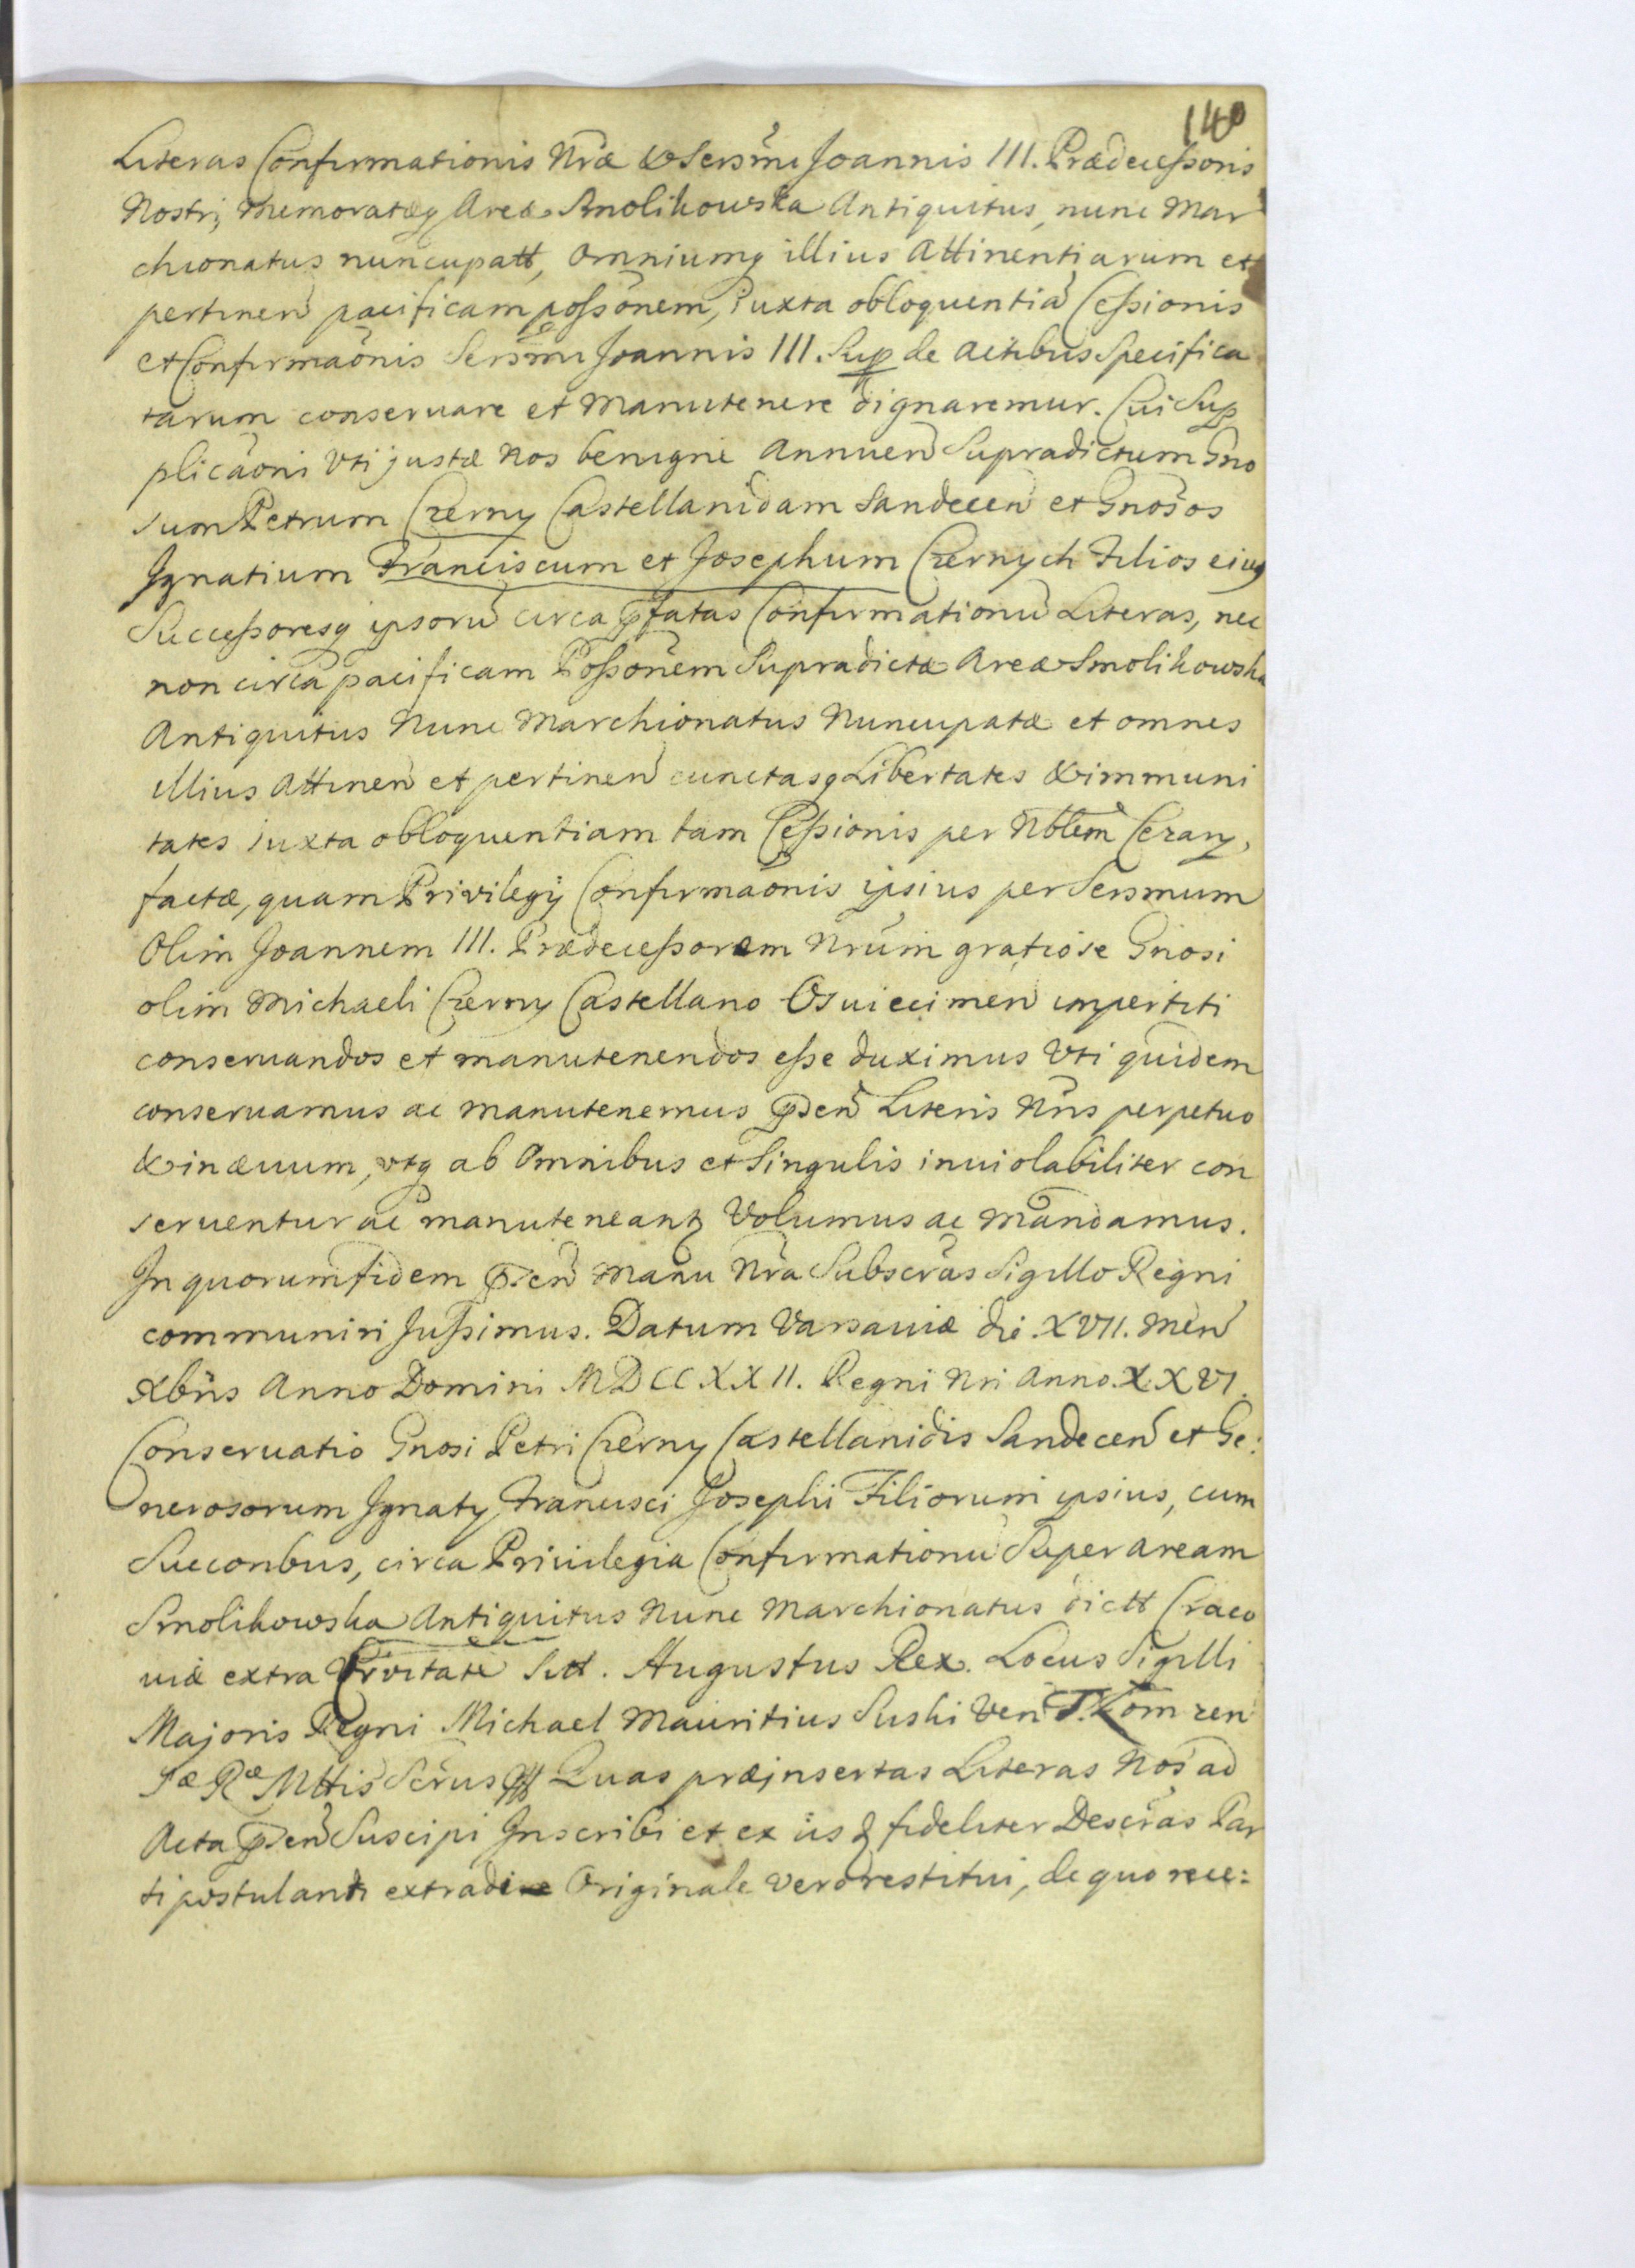 140
Literas Confirmationis Nrae & Sersmi Joannis III. Praedecessoris
Nostri, memorataeq Areae Smolikowska Antiquitus, nunc Mar
chionatus nuncupatt, Omniumq illius Attinentiarum et
pertinen pacificam possonem, iuxta obloquentia Cessionis
et Confirmaonis Sersmi Joannis III. Sup de actibus Specifica
tarum conseruare et Manutenere dignaremur. Cui Sup
plicaoni Vti justae Nos benigne Annuen Supradictum Gno
sum Petrum Czerny Castellanidam Sandecen et Gnosos
Ignatium Franciscum et Josephum Czernych Filios eius
Successoresq ipsoru circa pfatas Confirmationu Literas, nec
non circa pacificam Possonem Supradictae Areae Smolikowska
Antiquitus Nunc Marchionatus Nuncupatae et omnes
illius Attinen et pertinen cunctasq Libertates & immuni
tates iuxta obloquentiam tam Cessionis per Nblem Cezary,
factae, quam Privilegij Confirmaonis ipsius per Sersmum
Olim Joannem III. Praedecessorem Nrum gratiose Gnosi
olim Michaeli Czerny Castellano Osuiecimen impertiti
conseruandos et manutenendos esse duximus Vti quidem
conseruamus ac manutenemus psen Literis Nris perpetuo
& in aeuum, vtq ab Omnibus et Singulis inuiolabiliter con
seruentur ac manuteneantz Volumus ac mandamus.
In quorum fidem psen Manu Nra Subscras Sigillo Regni
communiri Jussimus. Datum Varsauiae die XVII. Men
Xbris Anno Domini MDCCXXII. Regni Nri Anno XXVI.
Conseruatio Gnosi Petri Czerny Castellanidis Sandecen et Ge:
nerosorum Ignatij Francisci Josephi Filiorum ipsius, cum
Succoribus, circa Priuilegia Confirmationu Super aream
Smolikowska Antiquitus Nunc Marchionatus dictt Craco
uiae extra Civitate Sitt. Augustus Rex. Locus Sigilli
Majoris Regni Michael Mauritius Suski Ven T. Kom zen
Sae Rae Mttis Scrus Quas praeinsertas Literas Nos ad
Acta psen Suscipi Inscribi et ex iis z fideliter Descras Par
ti postulanti extradi Originale vero restitui, de quo rece: